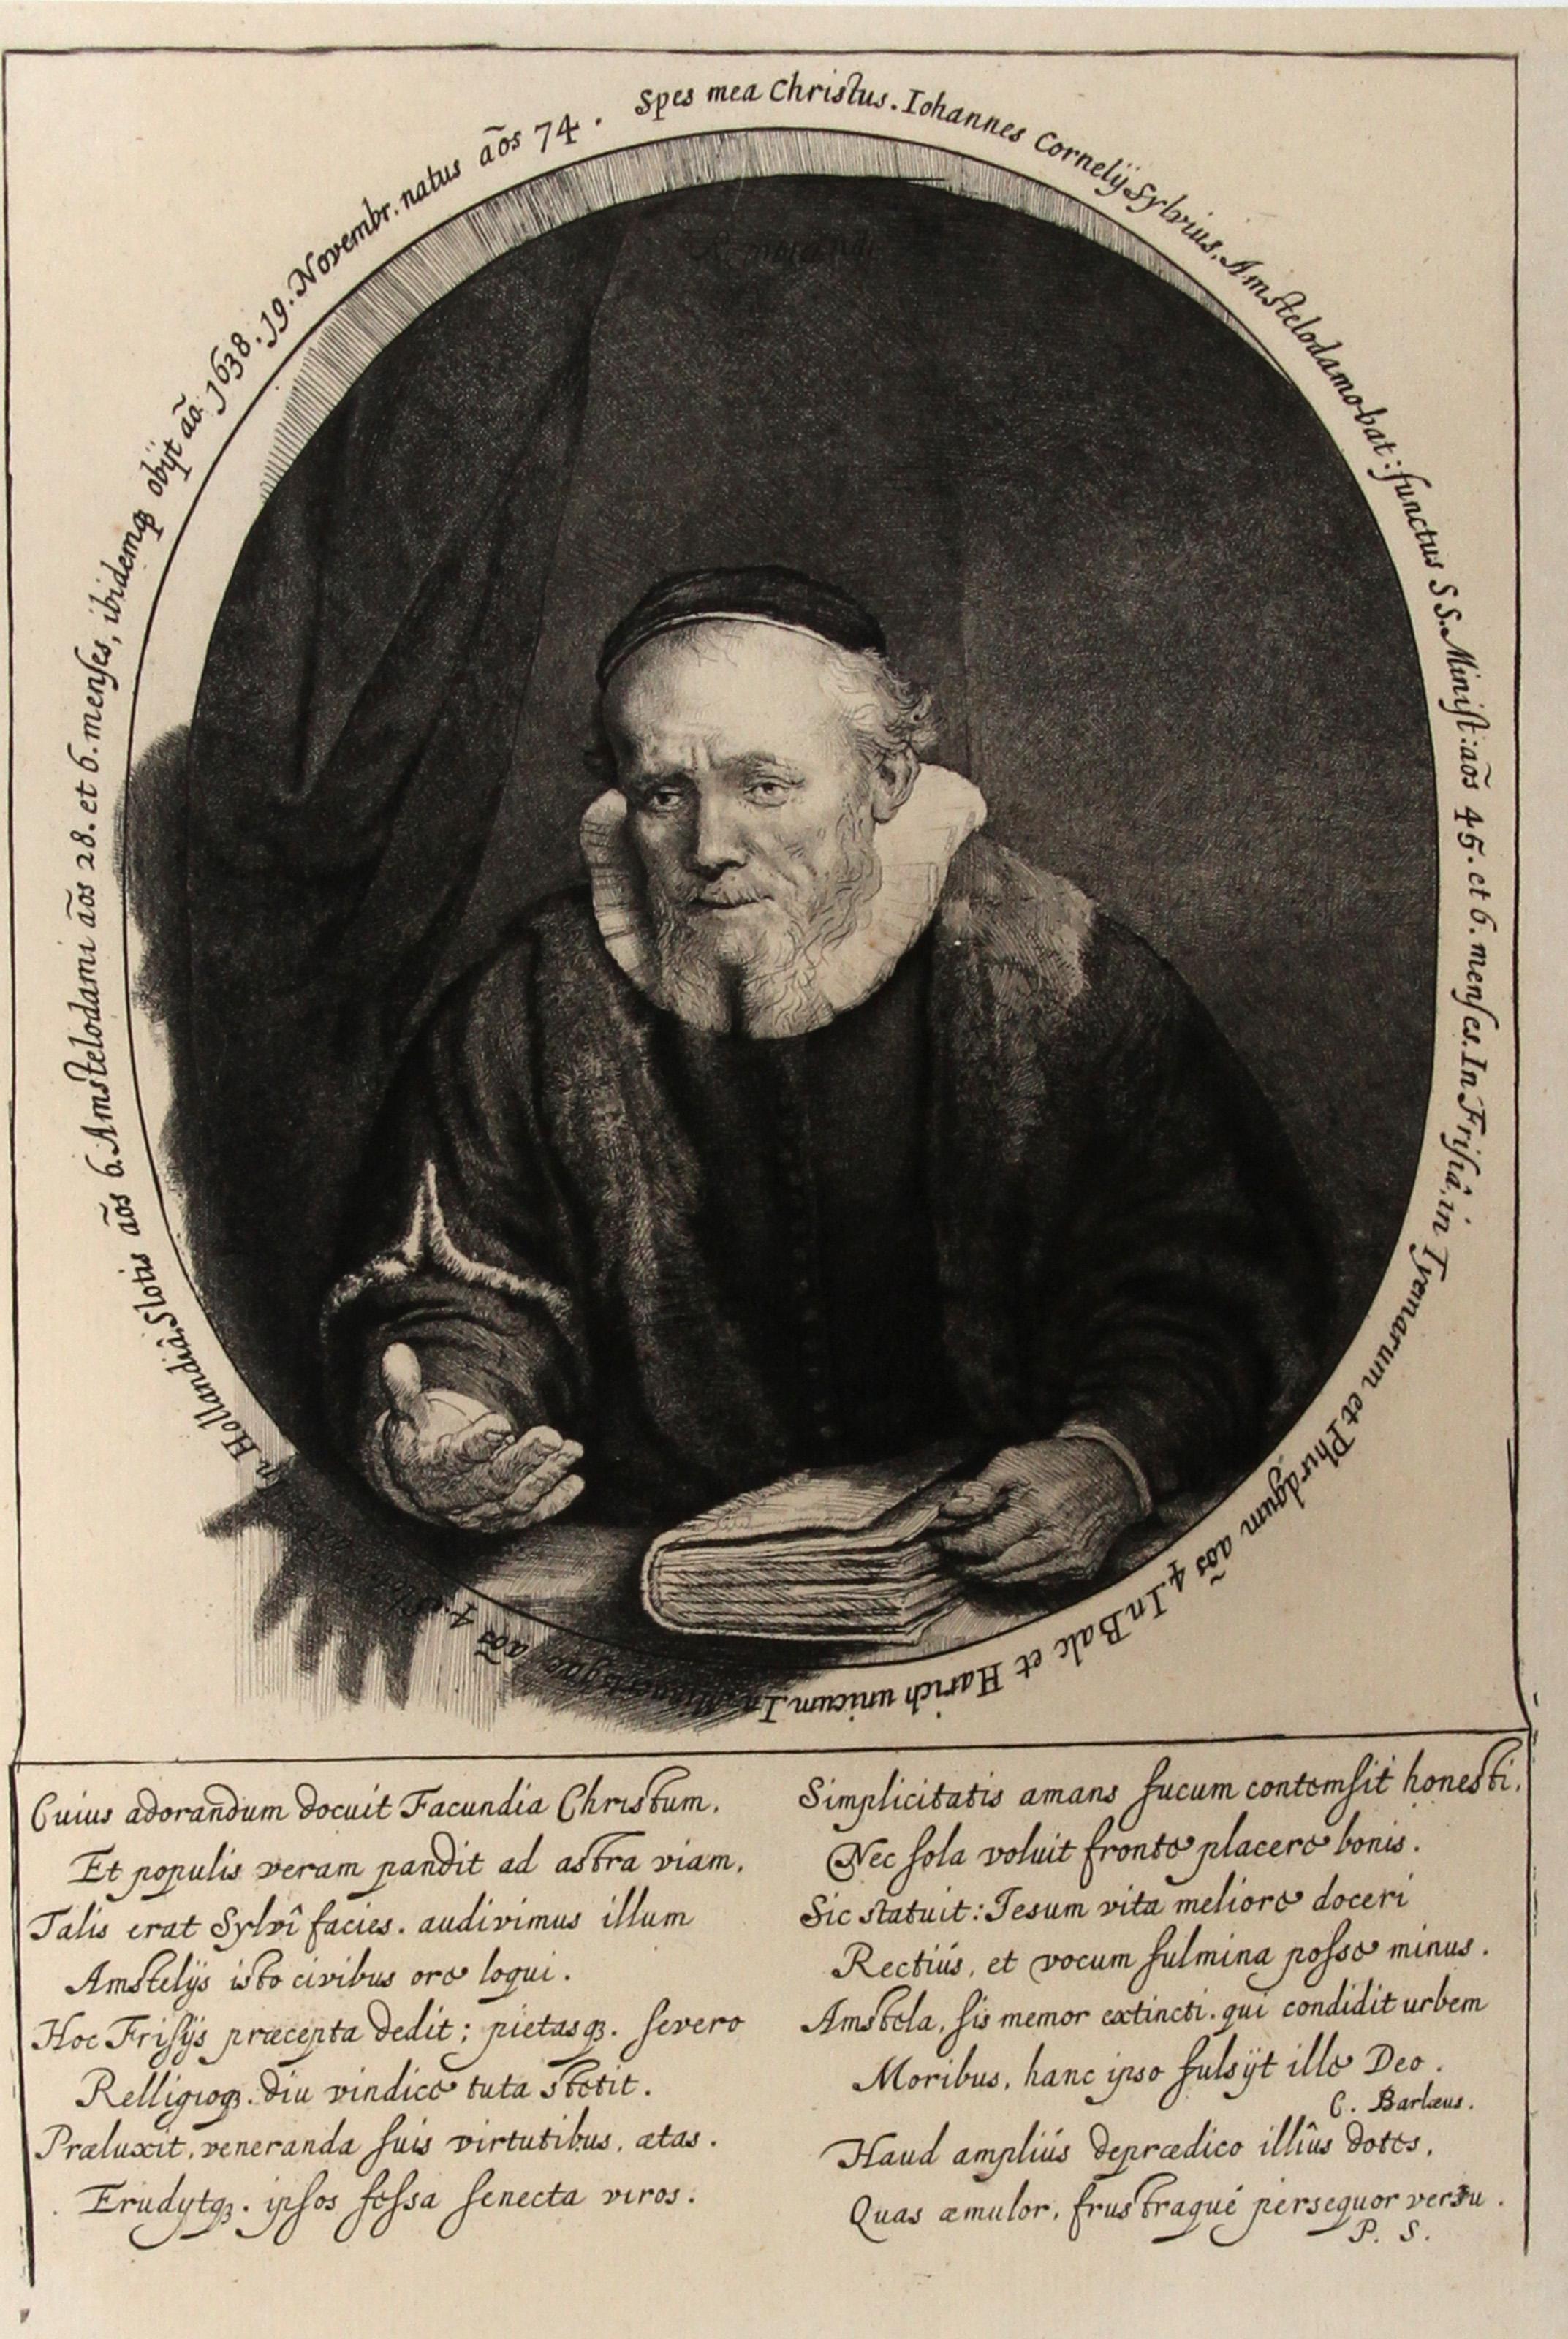 Spes mea Christus. Iohannes Cornelÿ Sylvius, Amstelodamobat: functus SS. Minist: aõs 45. et 6. menses. In Frisiâ, in Tyemarum et Phirdgum aõs 4. In Balc et Harich unicum. In aõs 4. In Hollandiâ, Slotis aõs 6. Amstelodami aõs 28. et 6. menses, ibidemqȝ obÿt aõ. 1638. 19. Novembr. natus aõs 74.
Cuius adorandum docuit Facundia Christum,
Et populis veram pandit ad astra viam,
Talis erat Sylvî facies. audivimus illum
Amstelÿs isto civibus ore loqui.
Hoc Frisÿs præcepta dedit; pietasqȝ. severo
Relligioqȝ. diu vindice tuta stetit.
Præluxit, veneranda suis virtutibus, ætas.
Erudytqȝ. ipsos fessa senecta viros.
Simplicitatis amans fucum contemsit honesti,
Nec sola voluit fronte placere bonis.
Sic statuit: Iesum vita meliore doceri
Rectiús, et vocum fulmina posse minus.
Amstela, sis memor extincti. qui condidit urbem
Moribus, hanc ipso fulsÿt ille Deo.
C. Barlæus.
Haud ampliús deprædico illîus dotes,
Quas æmulor, frustraqué persequor versu.
P. S.